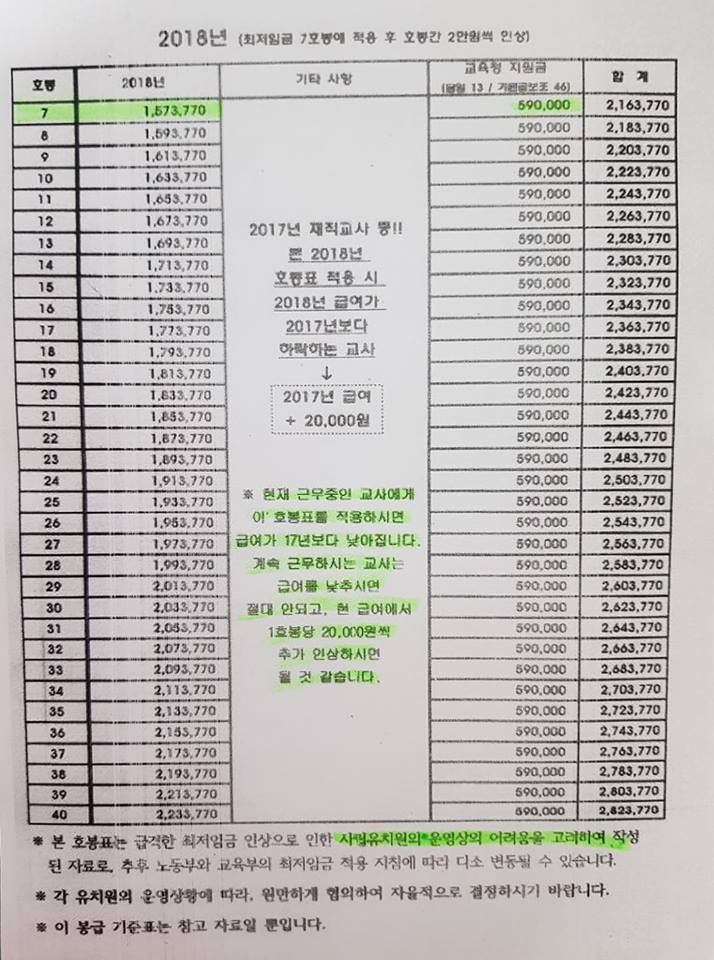 2018년 (최저임금 7호봉에 적용 후 호봉간 2만원씩 인상)
호봉 2018년 기타 사항 교육청 지원금 합 계
(담임 13 / 기본급보조 46)
7 1,573,770 590,000 2,163,770
8 1,593,770 590,000 2,183,770
9 1,613,770 590,000 2,203,770
10 1,633,770 590,000 2,223,770
11 1,653,770 590,000 2,243,770
12 1,673,770 590,000 2,263,770
13 1,693,770 590,000 2,283,770
14 1,713,770 590,000 2,303,770
15 1,733,770 590,000 2,323,770
16 1,753,770 590,000 2,343,770
17 1,773,770 590,000 2,363,770
18 1,793,770 590,000 2,383,770
19 1,813,770 590,000 2,403,770
20 1,833,770 590,000 2,423,770
21 1,853,770 590,000 2,443,770
22 1,873,770 590,000 2,463,770
23 1,893,770 590,000 2,483,770
24 1,913,770 590,000 2,503,770
25 1,933,770 590,000 2,523,770
26 1,953,770 590,000 2,543,770
27 1,973,770 590,000 2,563,770
28 1,993,770 590,000 2,583,770
29 2,013,770 590,000 2,603,770
30 2,033,770 590,000 2,623,770
31 2,053,770 590,000 2,643,770
32 2,073,770 590,000 2,663,770
33 2,093,770 590,000 2,683,770
34 2,113,770 590,000 2,703,770
35 2,133,770 590,000 2,723,770
36 2,153,770 590,000 2,743,770
37 2,173,770 590,000 2,763,770
38 2,193,770 590,000 2,783,770
39 2,213,770 590,000 2,803,770
40 2,233,770 590,000 2,823,770
2017년 재직교사 中!!
본 2018년
호봉표 적용 시
2018년 급여가
2017년보다
하락하는 교사
↓
2017년 급여
+ 20,000원
※ 현재 근무중인 교사에게
이 호봉표를 적용하시면
급여가 17년보다 낮아집니다.
계속 근무하시는 교사는
급여를 낮추시면
절대 안되고, 현 급여에서
1호봉당 20,000원씩
추가 인상하시면
될 것 같습니다.
※ 본 호봉표는 급격한 최저임금 인상으로 인한 사립유치원의 운영상의 어려움을 고려하여 작성
된 자료로, 추후 노동부와 교육부의 최저임금 적용 지침에 따라 다소 변동될 수 있습니다.
※ 각 유치원의 운영상황에 따라, 원만하게 협의하여 자율적으로 결정하시기 바랍니다.
※ 이 봉급 기준표는 참고 자료일 뿐입니다.